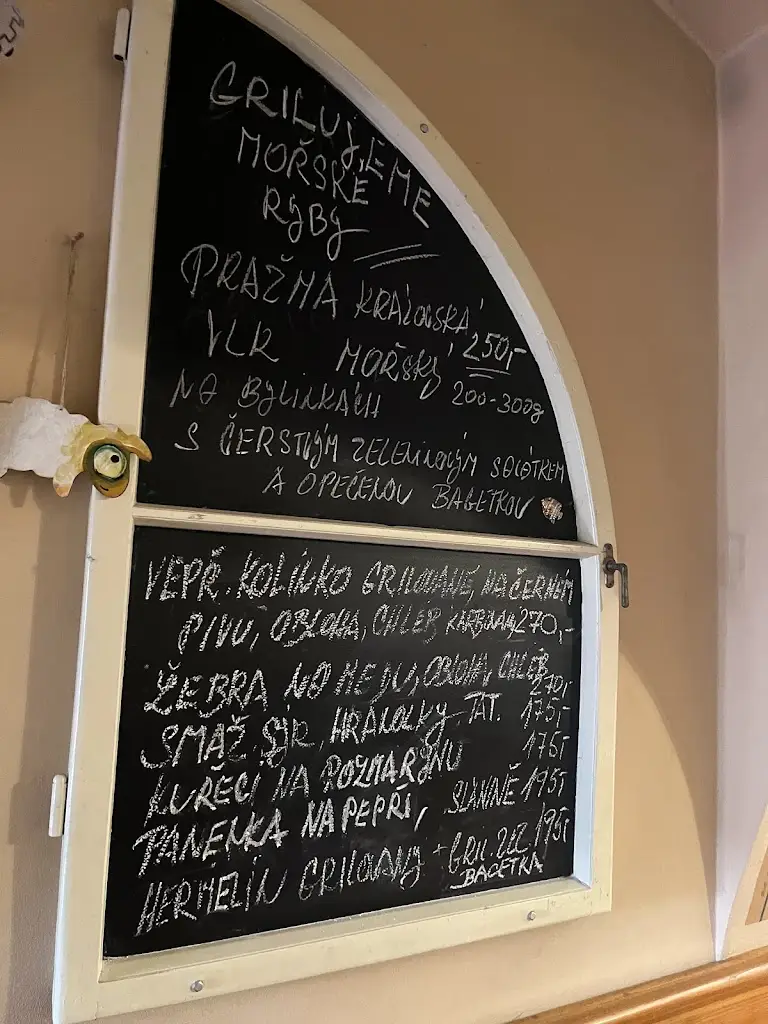 GRILUJEME
MOŘSKÉ
RYBY
PRAŽMA KRÁLOVSKÁ
VLK MOŘSKÝ 250,-
NA BYLINKÁCH 200-300g
S ČERSTVÝM ZELENINOVÝM SALÁTKEM
A OPEČENOU BAGETKOU
VEPŘ. KOLÍNKO GRILOVANÉ, NA ČERNÉM
PIVU, OBLOHA, CHLEB 270,-
ŽEBRA NA MEDU, OBLOHA, CHLEB
270,-
SMAŽ. SÝR, HRANOLKY, TAT. 175,-
KUŘECÍ NA ROZMARÝNU 175,-
PANENKA NA PEPŘI, SLANINĚ 195,-
HERMELÍN GRILOVANÝ + GRIL. ZEL 195,-
BAGETKA